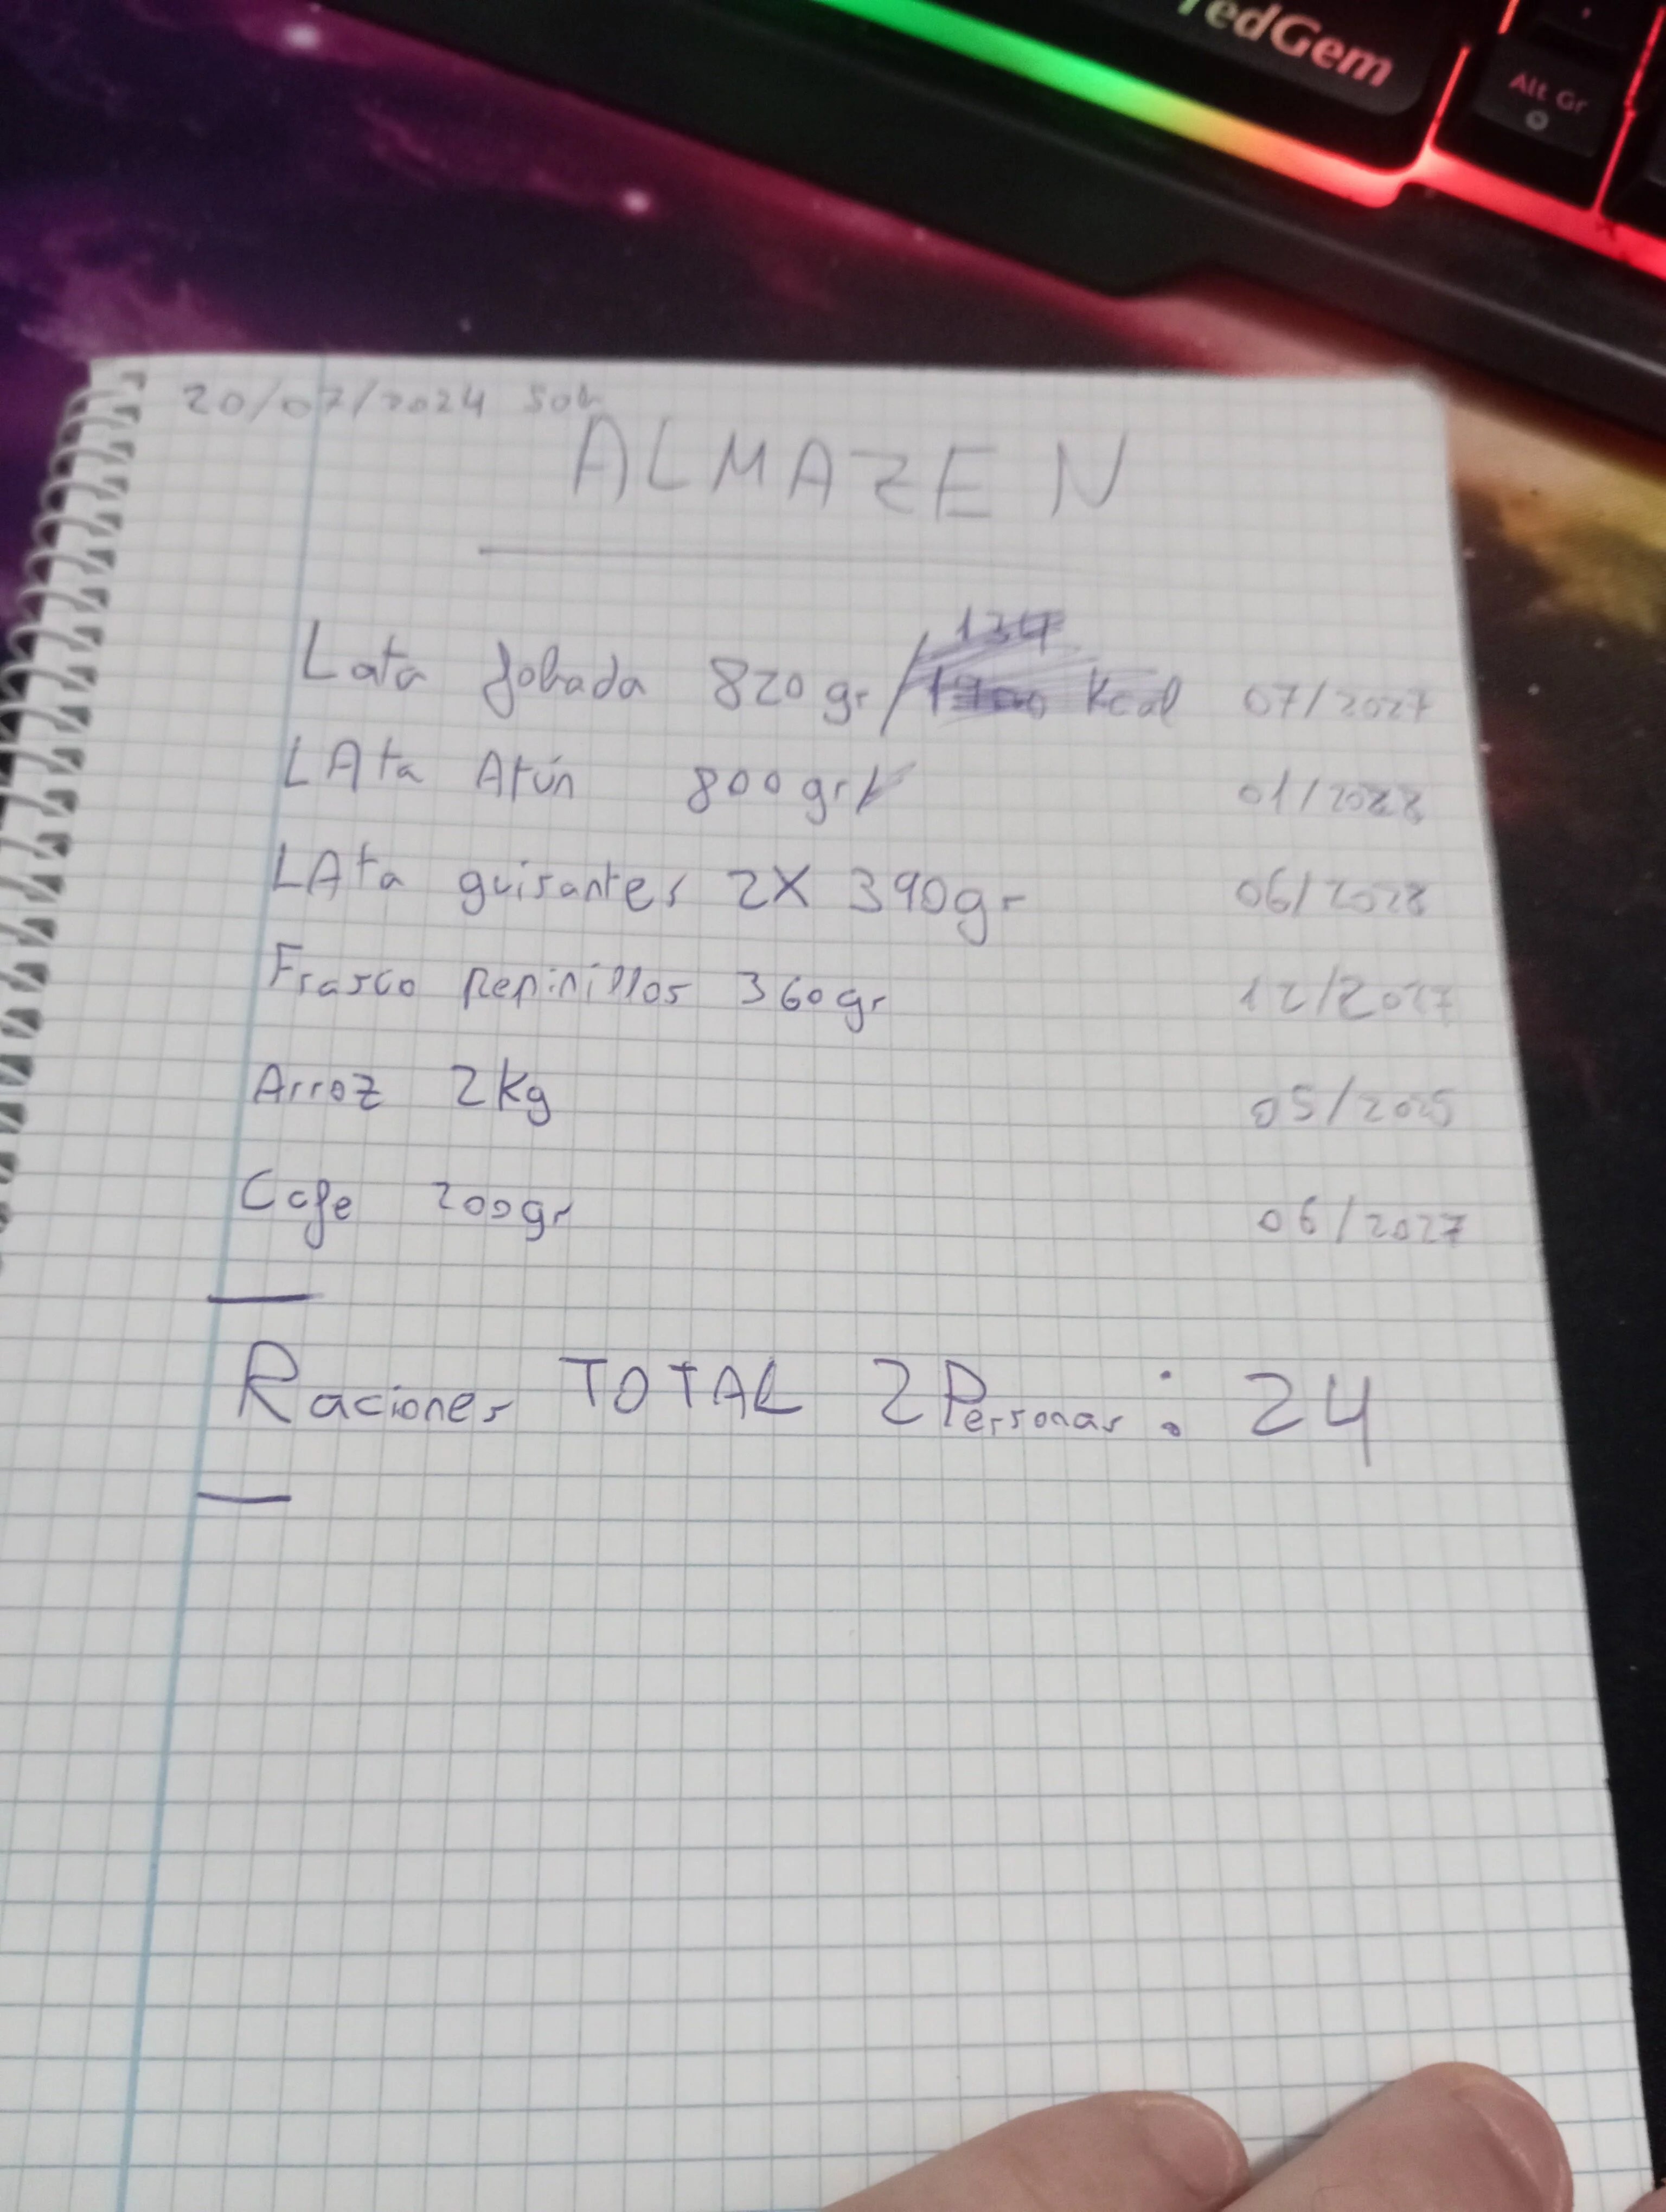 redGem
Alt Gr
20/07/2024 Sob
ALMAZEN
Lata fabada 820gr/ Kcal 07/2027
LAta Atún 800gr 01/2028
LAta guisantes 2X 390gr 06/2028
Frasco Pepinillos 360gr 12/2027
Arroz 2Kg 05/2025
Cafe 200gr 06/2027
Raciones TOTAL 2Personas: 24